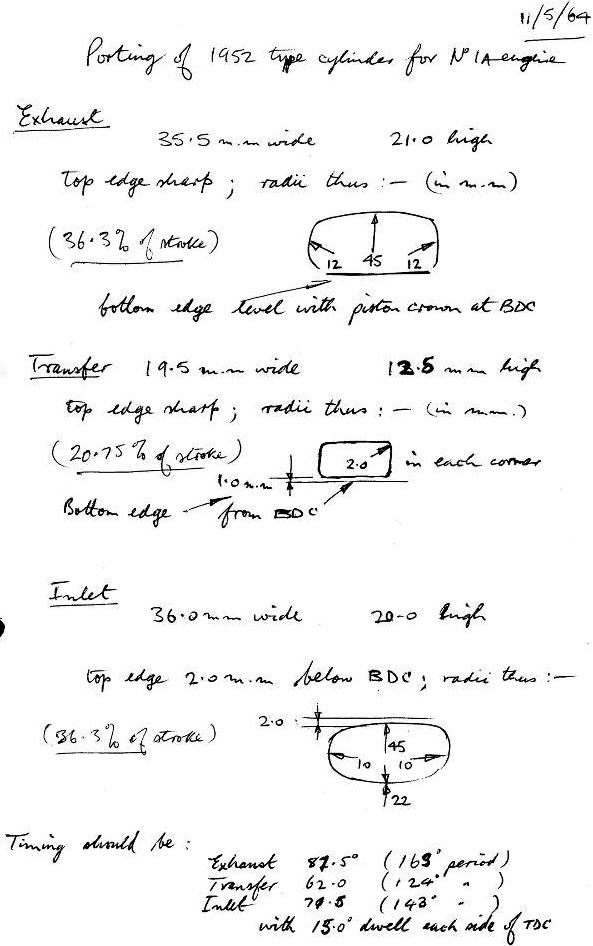 11/5/64
Porting of 1952 type cylinder for No 1A engine
Exhaust
35.5 m.m wide 21.0 high
Top edge sharp ; radii thus :— (in m.m)
(36.3% of stroke)
12 45 12
bottom edge level with piston crown at BDC
Transfer 19.5 m.m wide 12.5 mm high
top edge sharp ; radii thus :— (in m.m.)
(20.75% of stroke) 2.0 in each corner
1.0 m.m
Bottom edge from BDC
Inlet
36.0 mm wide 20.0 high
top edge 2.0 m.m below BDC ; radii thus :—
2.0
(36.3% of stroke)
45
10 10
22
Timing should be :
Exhaust 81.5° (163° period)
Transfer 62.0 (124° " )
Inlet 71.5 (143° " )
with 15.0° dwell each side of TDC